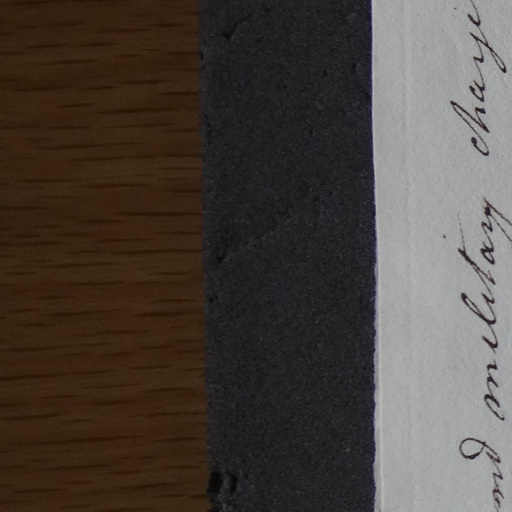 and military charge